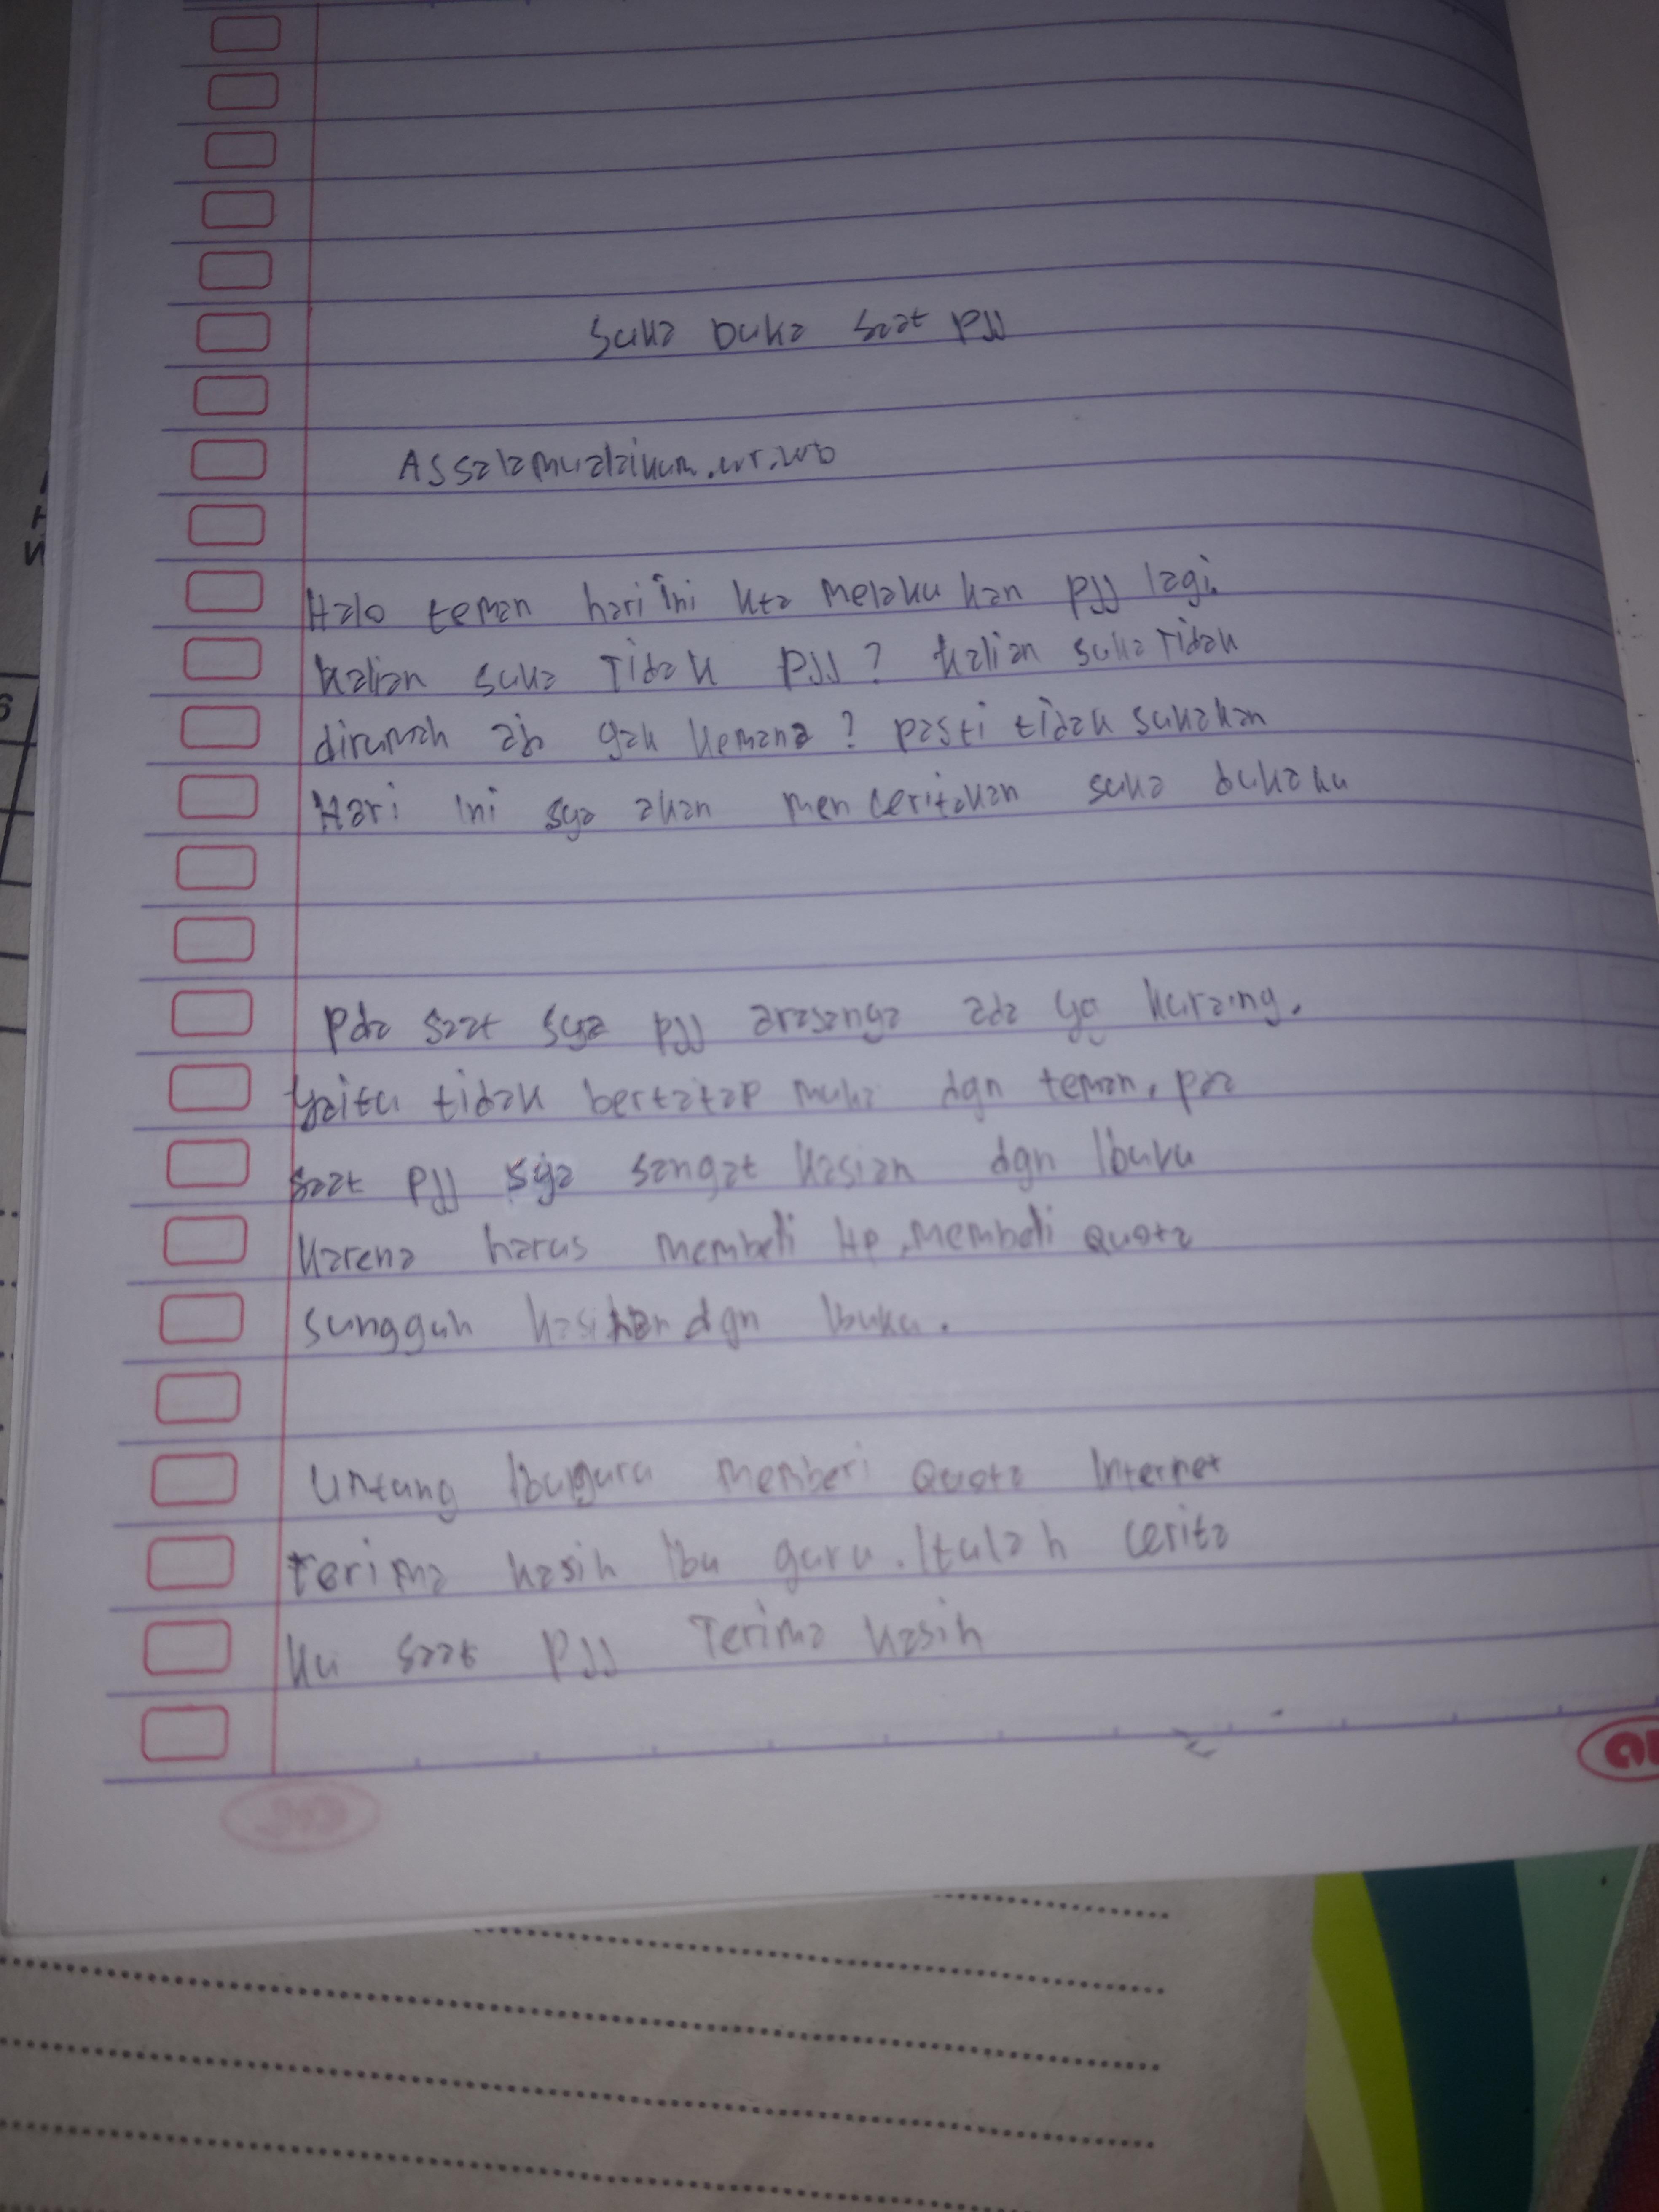 Suka duka saat PJJ
Assalamualaikum.wr.wb
Halo teman hari ini kta melakukan pjj lagi.
kalian suka Tidak PJJ? kalian suka Tidak
dirumah aja gak kemana? pasti tidak sukakan
Hari ini sya akan menceritakan suka dukaku
Pda saat sya pjj arasanya ada yg kuraing.
yaitu tidak bertatap muka dgn teman, pda
saat pjj sya sangat kasian dgn Ibuku
karena harus membeli HP, membeli Quota
sungguh kasihan dgn Ibuku.
Untung Ibu guru memberi Quota Internet
terima kasih Ibu guru. Itulah cerita
ku saat PJJ Terima kasih